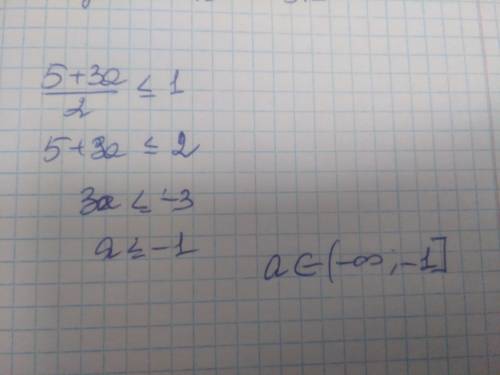 5+3a/2 ≤ 1
5+3a ≤ 2
3a ≤ -3
a ≤ -1
a ∈ (-∞; -1]